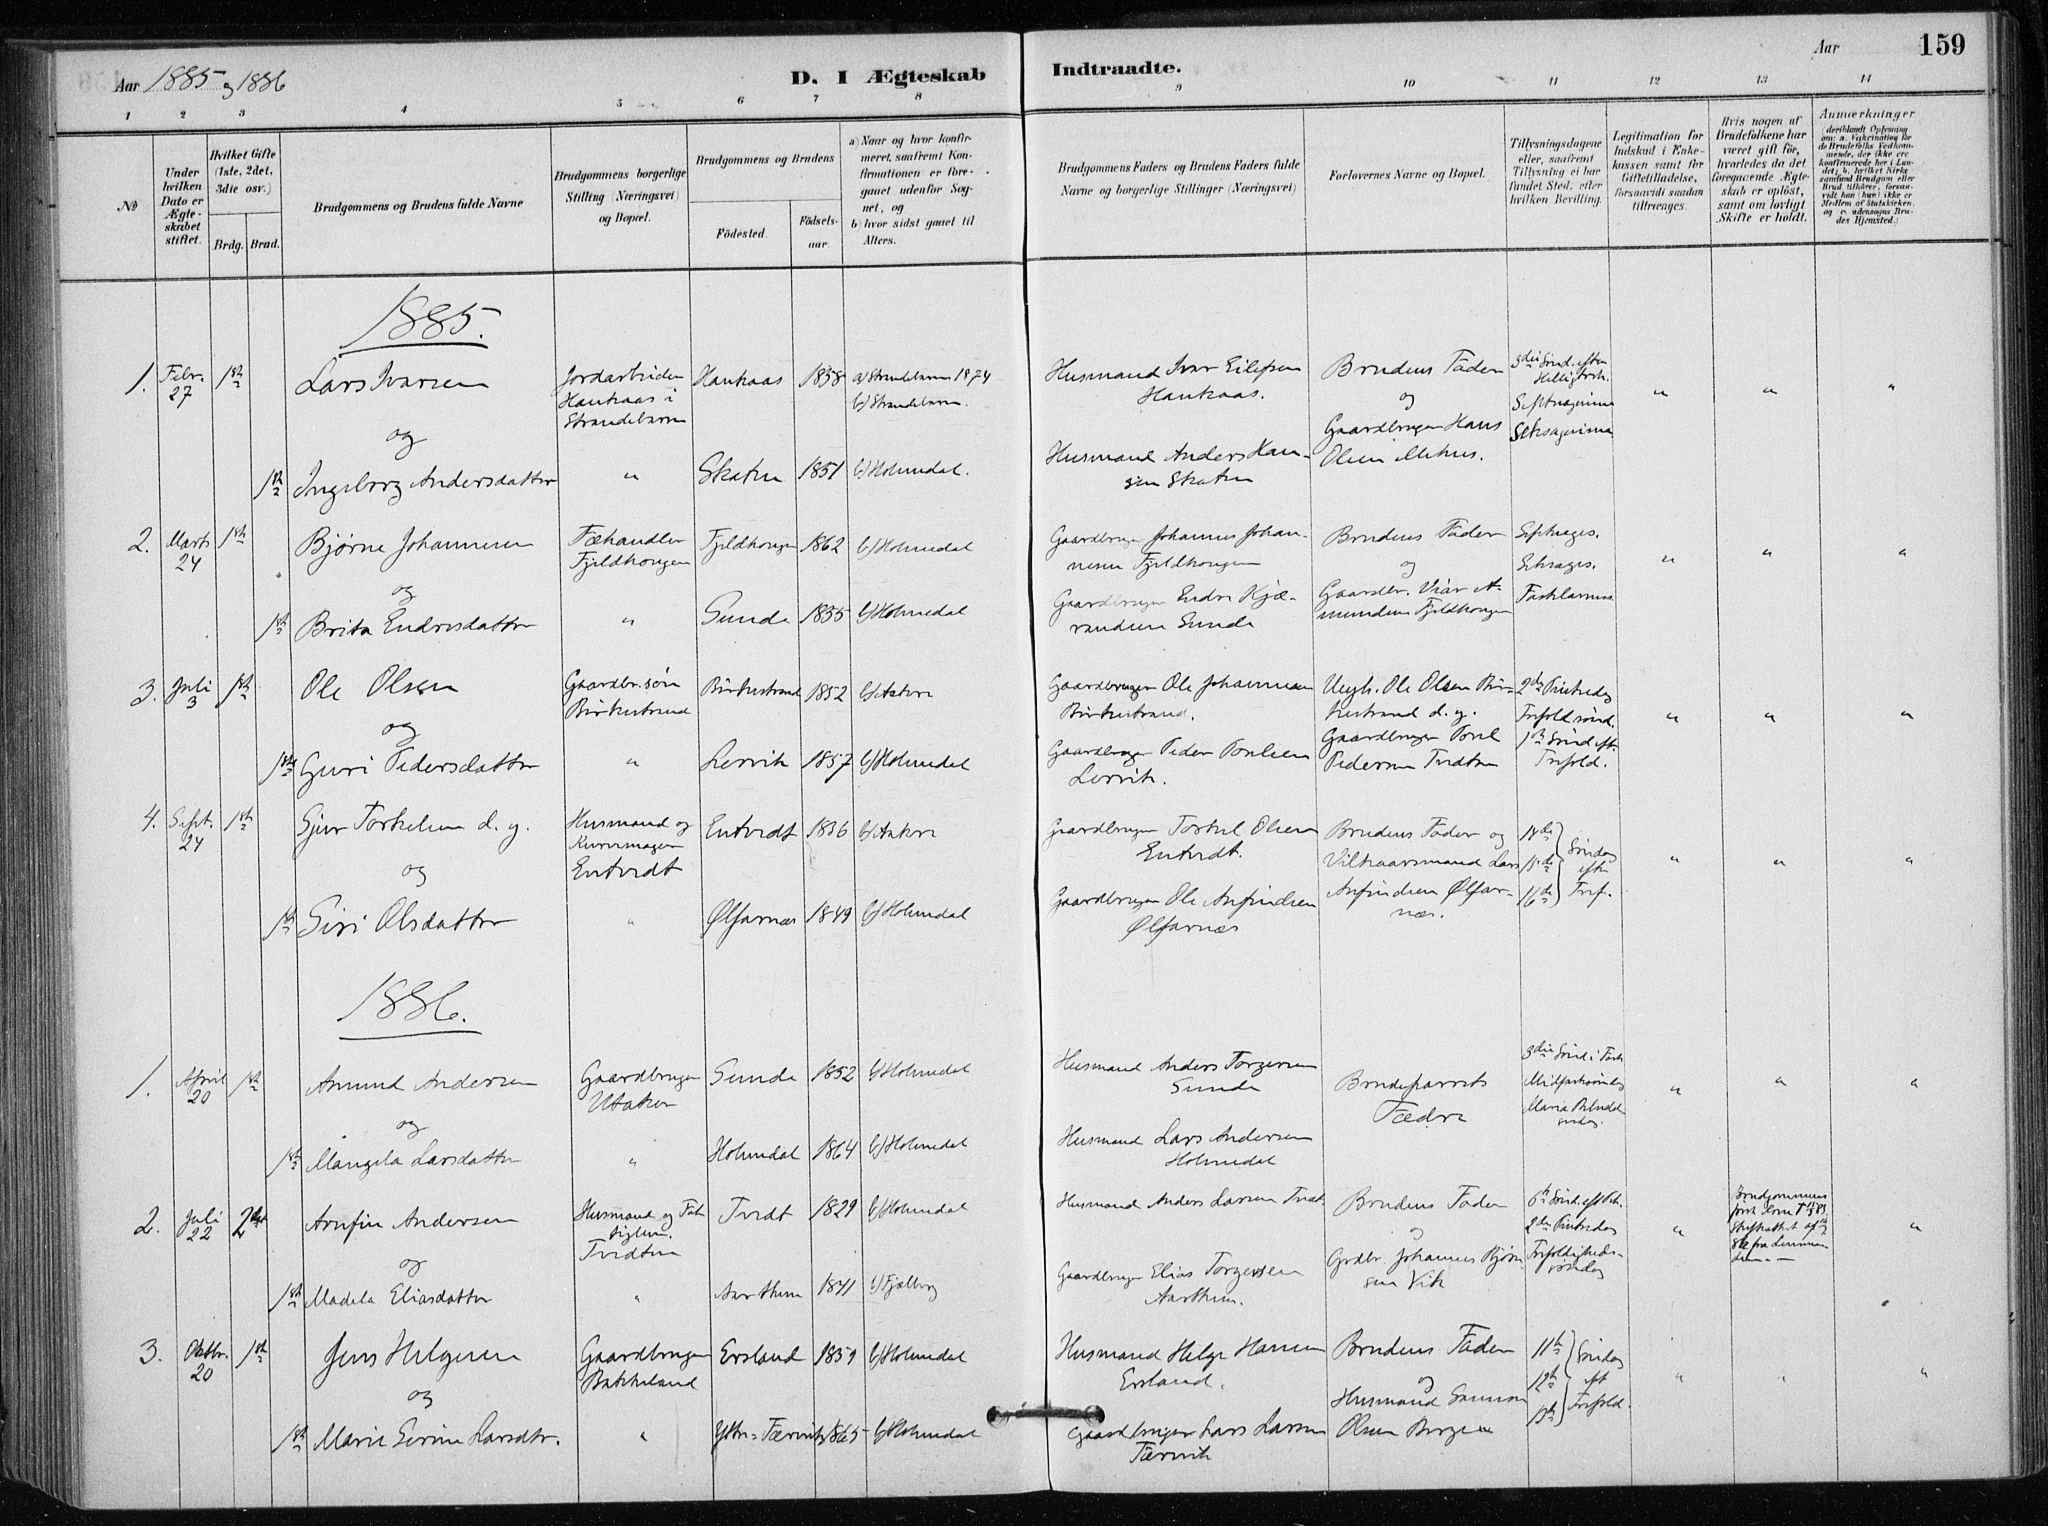 Aar 1885 og 1886
D. I Ægteskab Indtraadte.
Aar
159
1 2 3 4 5 6 7 8 9 10 11 12 13 14
No
Under hvilken Dato er Ægteskabet stiftet.
Hvilket Gifte (1ste, 2det, 3die osv.)
Brdg. Brud.
Brudgommens og Brudens fulde Navne
Brudgommens borgerlige Stilling (Næringsvei) og Bopæl.
Brudgommens og Brudens
Födested.
Födsels-aar.
a) Naar og hvor konfirmeret, saafremt Konfirmationen er foregaaet udenfor Sognet, og
b) hvor sidst gaaet til Alters.
Brudgommens Faders og Brudens Faders fulde Navne og borgerlige Stillinger (Næringsvei)
Forlovernes Navne og Bopæl.
Tillysningsdagene eller, saafremt Tillysning ei har fundet Sted, efter hvilken Bevilling.
Legitimation for Indskud i Enkekassen samt for Giftetilladelse, forsaavidt saadan tiltrænges.
Hvis nogen af Brudefolkene har været gift för, hvorledes da det foregaaende Ægteskab er oplöst, samt om lovligt Skifte er holdt.
Anmærkninger
(deriblandt Oplysning om: a. Vakcination for de Brudefolks Vedkommende, der ikke ere konfirmerede her i Landet; b. hvilket Kirkesamfund Brudgom eller Brud tilhörer, forsaavidt han (hun) ikke er Medlem af Statskirken, og c. udensogns Brudes Hjemsted.)
1885.
1. Febr. 27 1ste Lars Ivarsen Jordarbeider Haukaas i Strandebarm Haukaas 1838 a) Strandebarm 1874 b) Strandebarm
Husmand Ivar Eilefsen Haukaas. Brudens Fader og Gaardbruger Hans Olsen Mehus. 3die Sønd. efter Helligtrek. Septuagesima Seksagesima " " "
og
1ste Ingeborg Andersdatter " Skaten 1851 b) Holmedal.
Husmand Anders Hansen Skaten
2. Marts 24 1ste Bjørne Johannesen Fæhandler Fjeldhougen Fjeldhougen 1862 b) Holmedal
Gaardbruger Johannes Johannesen Fjeldhougen Brudens Fader og Gaardbr. Amundsen Fjeldhougen Septuages. Seksages. Fastelavns. " " "
og
1ste Brita Endresdatter " Sunde 1835 b) Holmedal
Gaardbruger Endre Sunde
3. Juli 3 1ste Ole Olsen Gaardbr.søn Birkestrand Birkestrand 1852 b) Aakre
Gaardbruger Ole Johannesen Birkestrand. Ungk. Ole Olsen Birkestrand d. y. Gaardbruger Pedersen Tvedten 2den Pintsedag Trefold.sønd. 1ste Sønd. eft. Trefold. " " "
og
1ste Guri Pedersdatter " Lervik 1857 b) Holmedal
Gaardbruger Peder Lervik.
4. Sept. 24 1ste Sjur Torkelsen d. y. Husmand og Kurvmager Entvedt Entvedt 1836 b) Aakre
Gaardbruger Torkel Olsen Entvedt. Brudens Fader og Vilkaarsmand Lars Anfindsen Ølfarnæs. 14de 15de 16de Søndag efter Tref. " " "
og
1ste Siri Olsdatter " Ølfarnæs 1849 b) Holmedal
Gaardbruger Ole Anfindsen Ølfarnæs
1886.
1. April 20 1ste Amund Andersen Gaardbruger Utaker Sunde 1852 b) Holmedal
Husmand Anders Torgersen Sunde Brudeparrets Fædre 3die Sønd. i Faste Midfastesøndag Maria Bebudelsesdag. " " "
og
1ste Mangela Larsdatter " Holmedal 1864 b) Holmedal
Husmand Lars Andersen Holmedal
2. Juli 22 2det Anfin Andersen Husmand og Fattiglem Tvedten Tvedt 1829 b) Holmedal
Husmand Anders Larsen Tvedt Brudens Fader og Grdbr. Johannes Bjørnsen Vik 6te Sønd. eft. Paaske 2den Pintsedag Trefoldighedssøndag " Brudgommens "
og
1ste Madela Eliasdatter " Aartheim 1841 b) Fjelberg
Gaardbruger Elias Torgersen Aartheim.
3. Oktbr. 20 1ste Jens Helgesen Gaardbruger Bakkeland Ersland 1859 b) Holmedal
Husmand Helge Hansen Ersland. Brudens Fader og Husmand Samson Olsen Borgen 11te 12te 13de Søndag eft. Trefold. " " "
og
1ste Marie Serine Larsdtr. " Ytre-Færvik 1865 b) Holmedal
Gaardbruger Lars Larsen Færvik